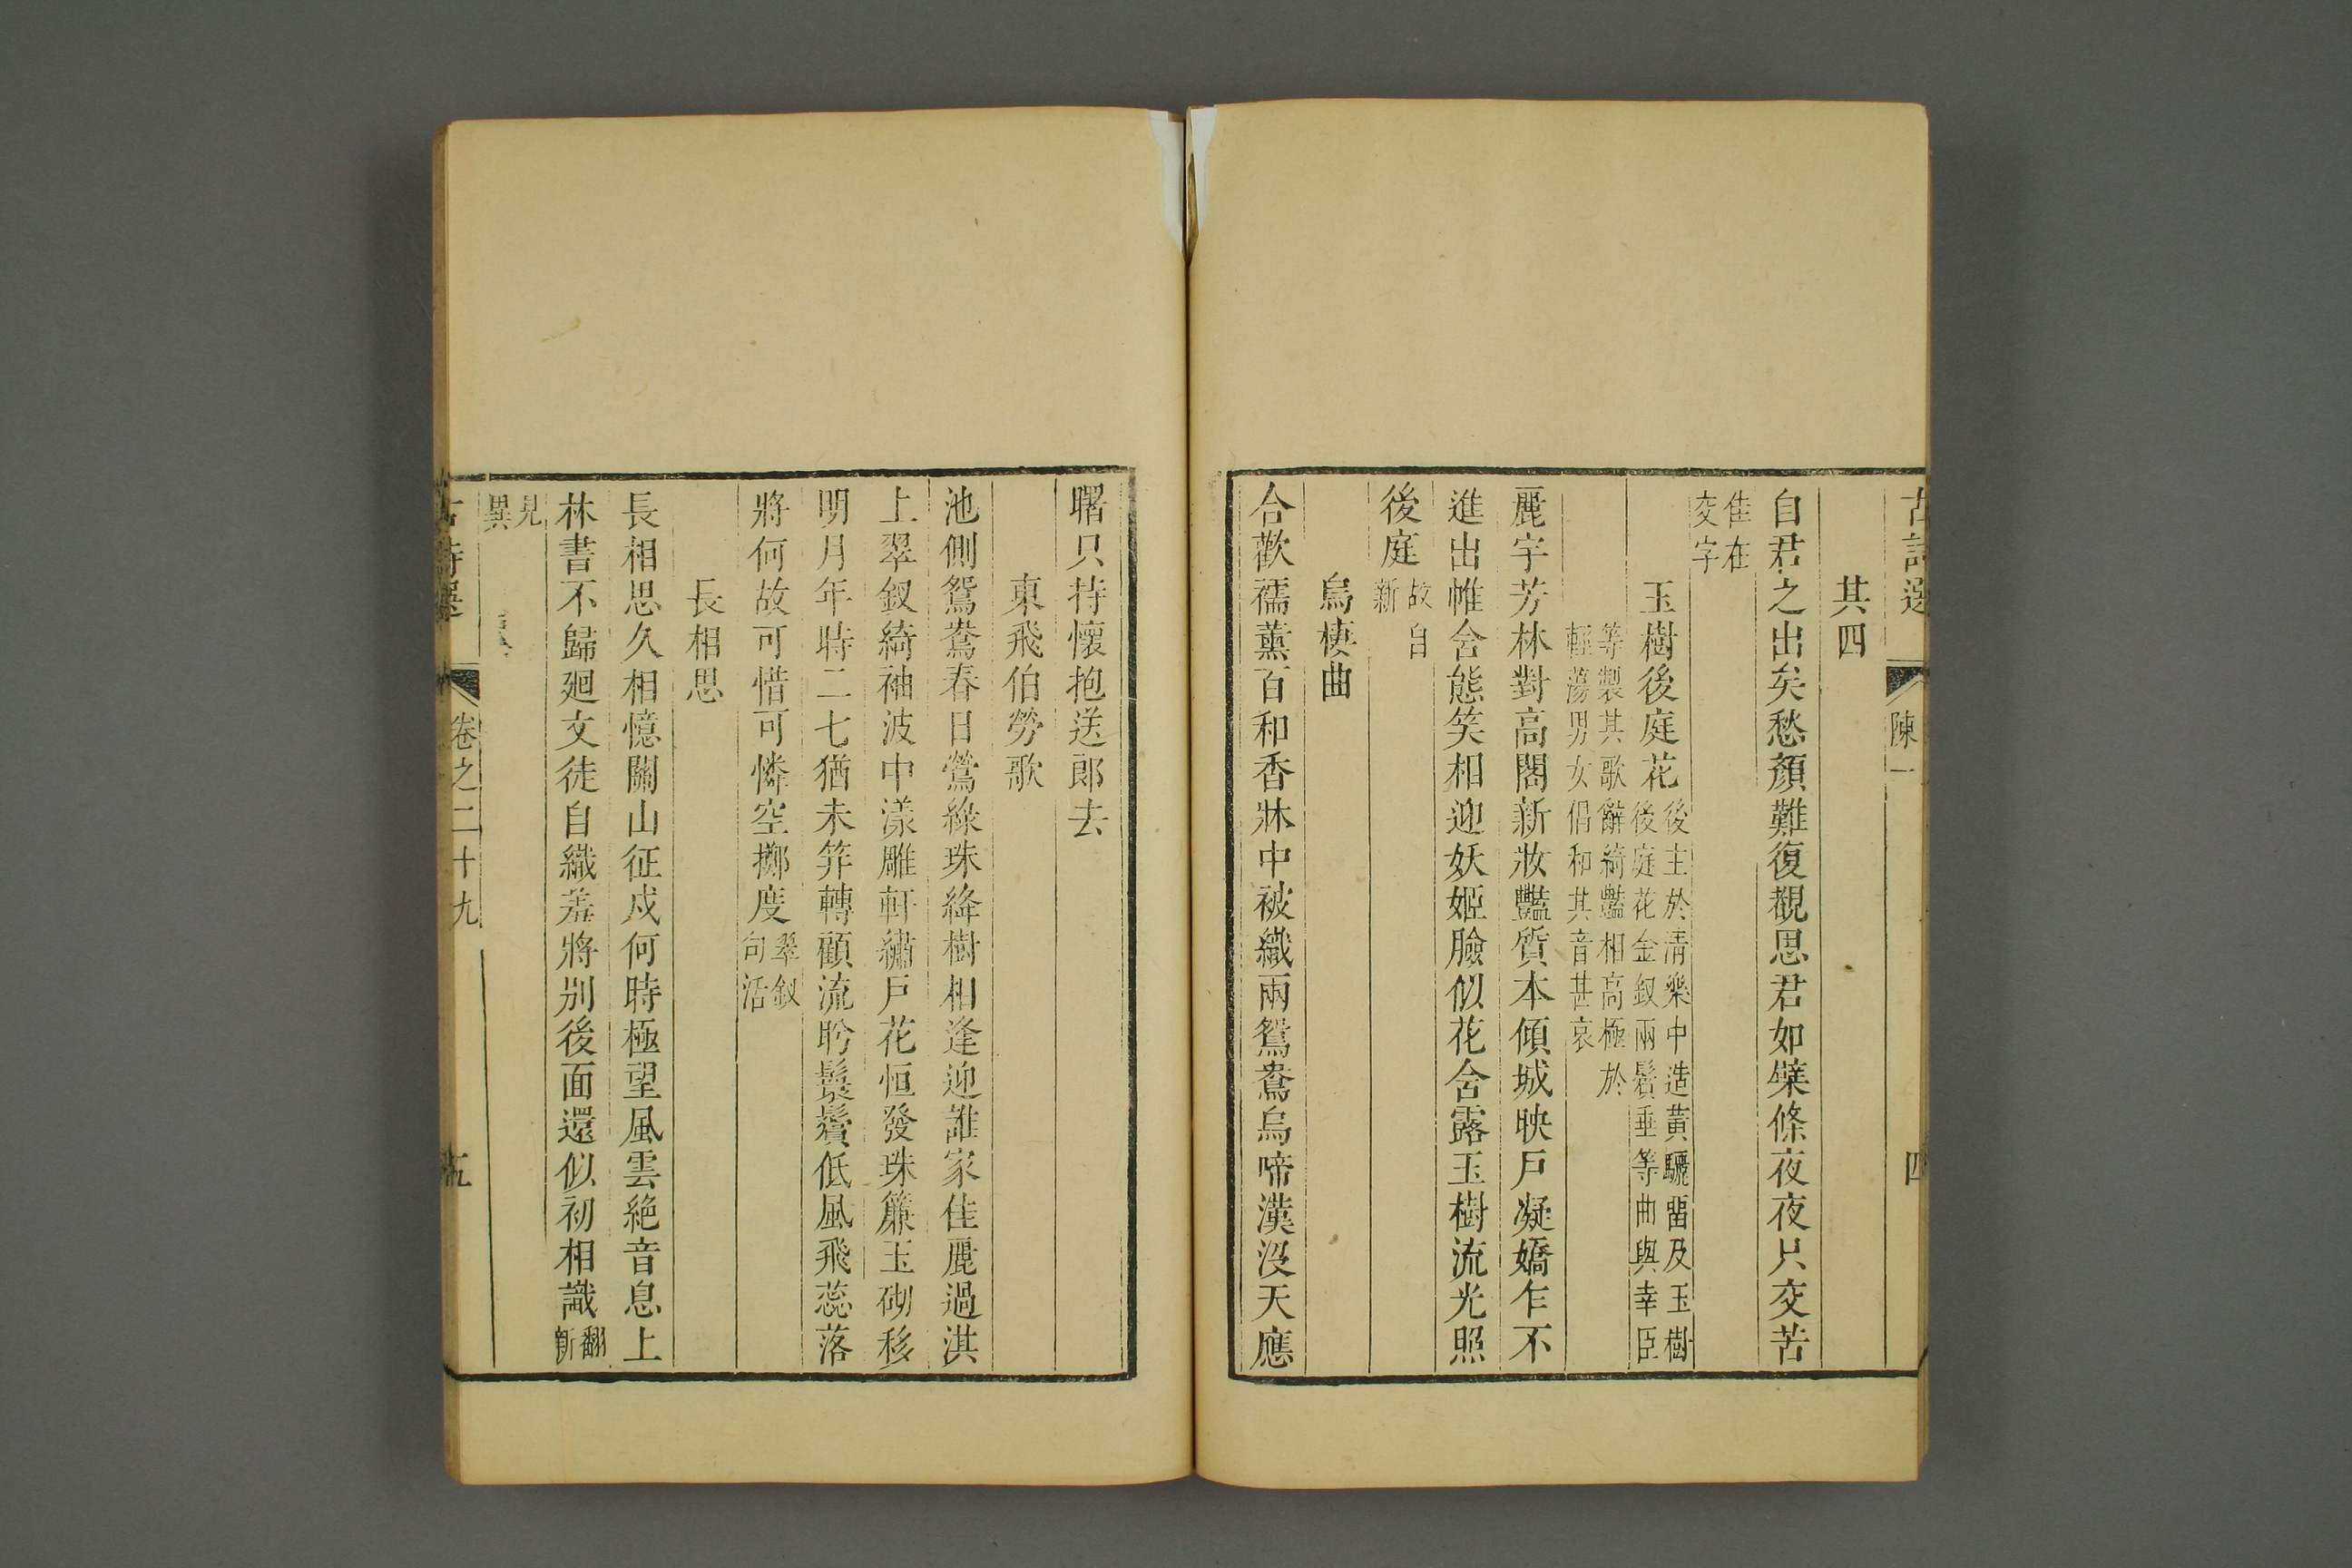 陳一
四
其四
自君之出矣愁顏難復覩思君如櫱條夜夜只交苦
佳在
交字
玉樹後庭花
後主於淸樂中造黃驪畱及玉樹
後庭花金釵兩鬂垂等曲與幸臣
等製其歌辭綺豔相高極於
輕蕩男女倡和其音甚哀
麗宇芳林對高閣新妝豔質本傾城映戸凝嬌乍不
進出帷含態笑相迎妖姬臉似花含露玉樹流光照
後庭
故自
新
烏棲曲
合歡襦薰百和香牀中被織兩鴛鴦烏啼漢沒天應
曙只持懷抱送郎去
東飛伯勞歌
池側鴛鴦春日鶯綠珠絳樹相逢迎誰家佳麗過淇
上翠釵綺袖波中漾雕軒繡戸花恒發珠簾玉砌移
明月年時二七猶未笄轉顧流盼鬟鬢低風飛蕊落
將何故可惜可憐空擲度
翠釵
句活
長相思
長相思久相憶關山征戍何時極望風雲絶音息上
林書不歸廻文徒自織羞將別後面還似初相識
翻
新
見
異
古詩選
卷之二十九
五